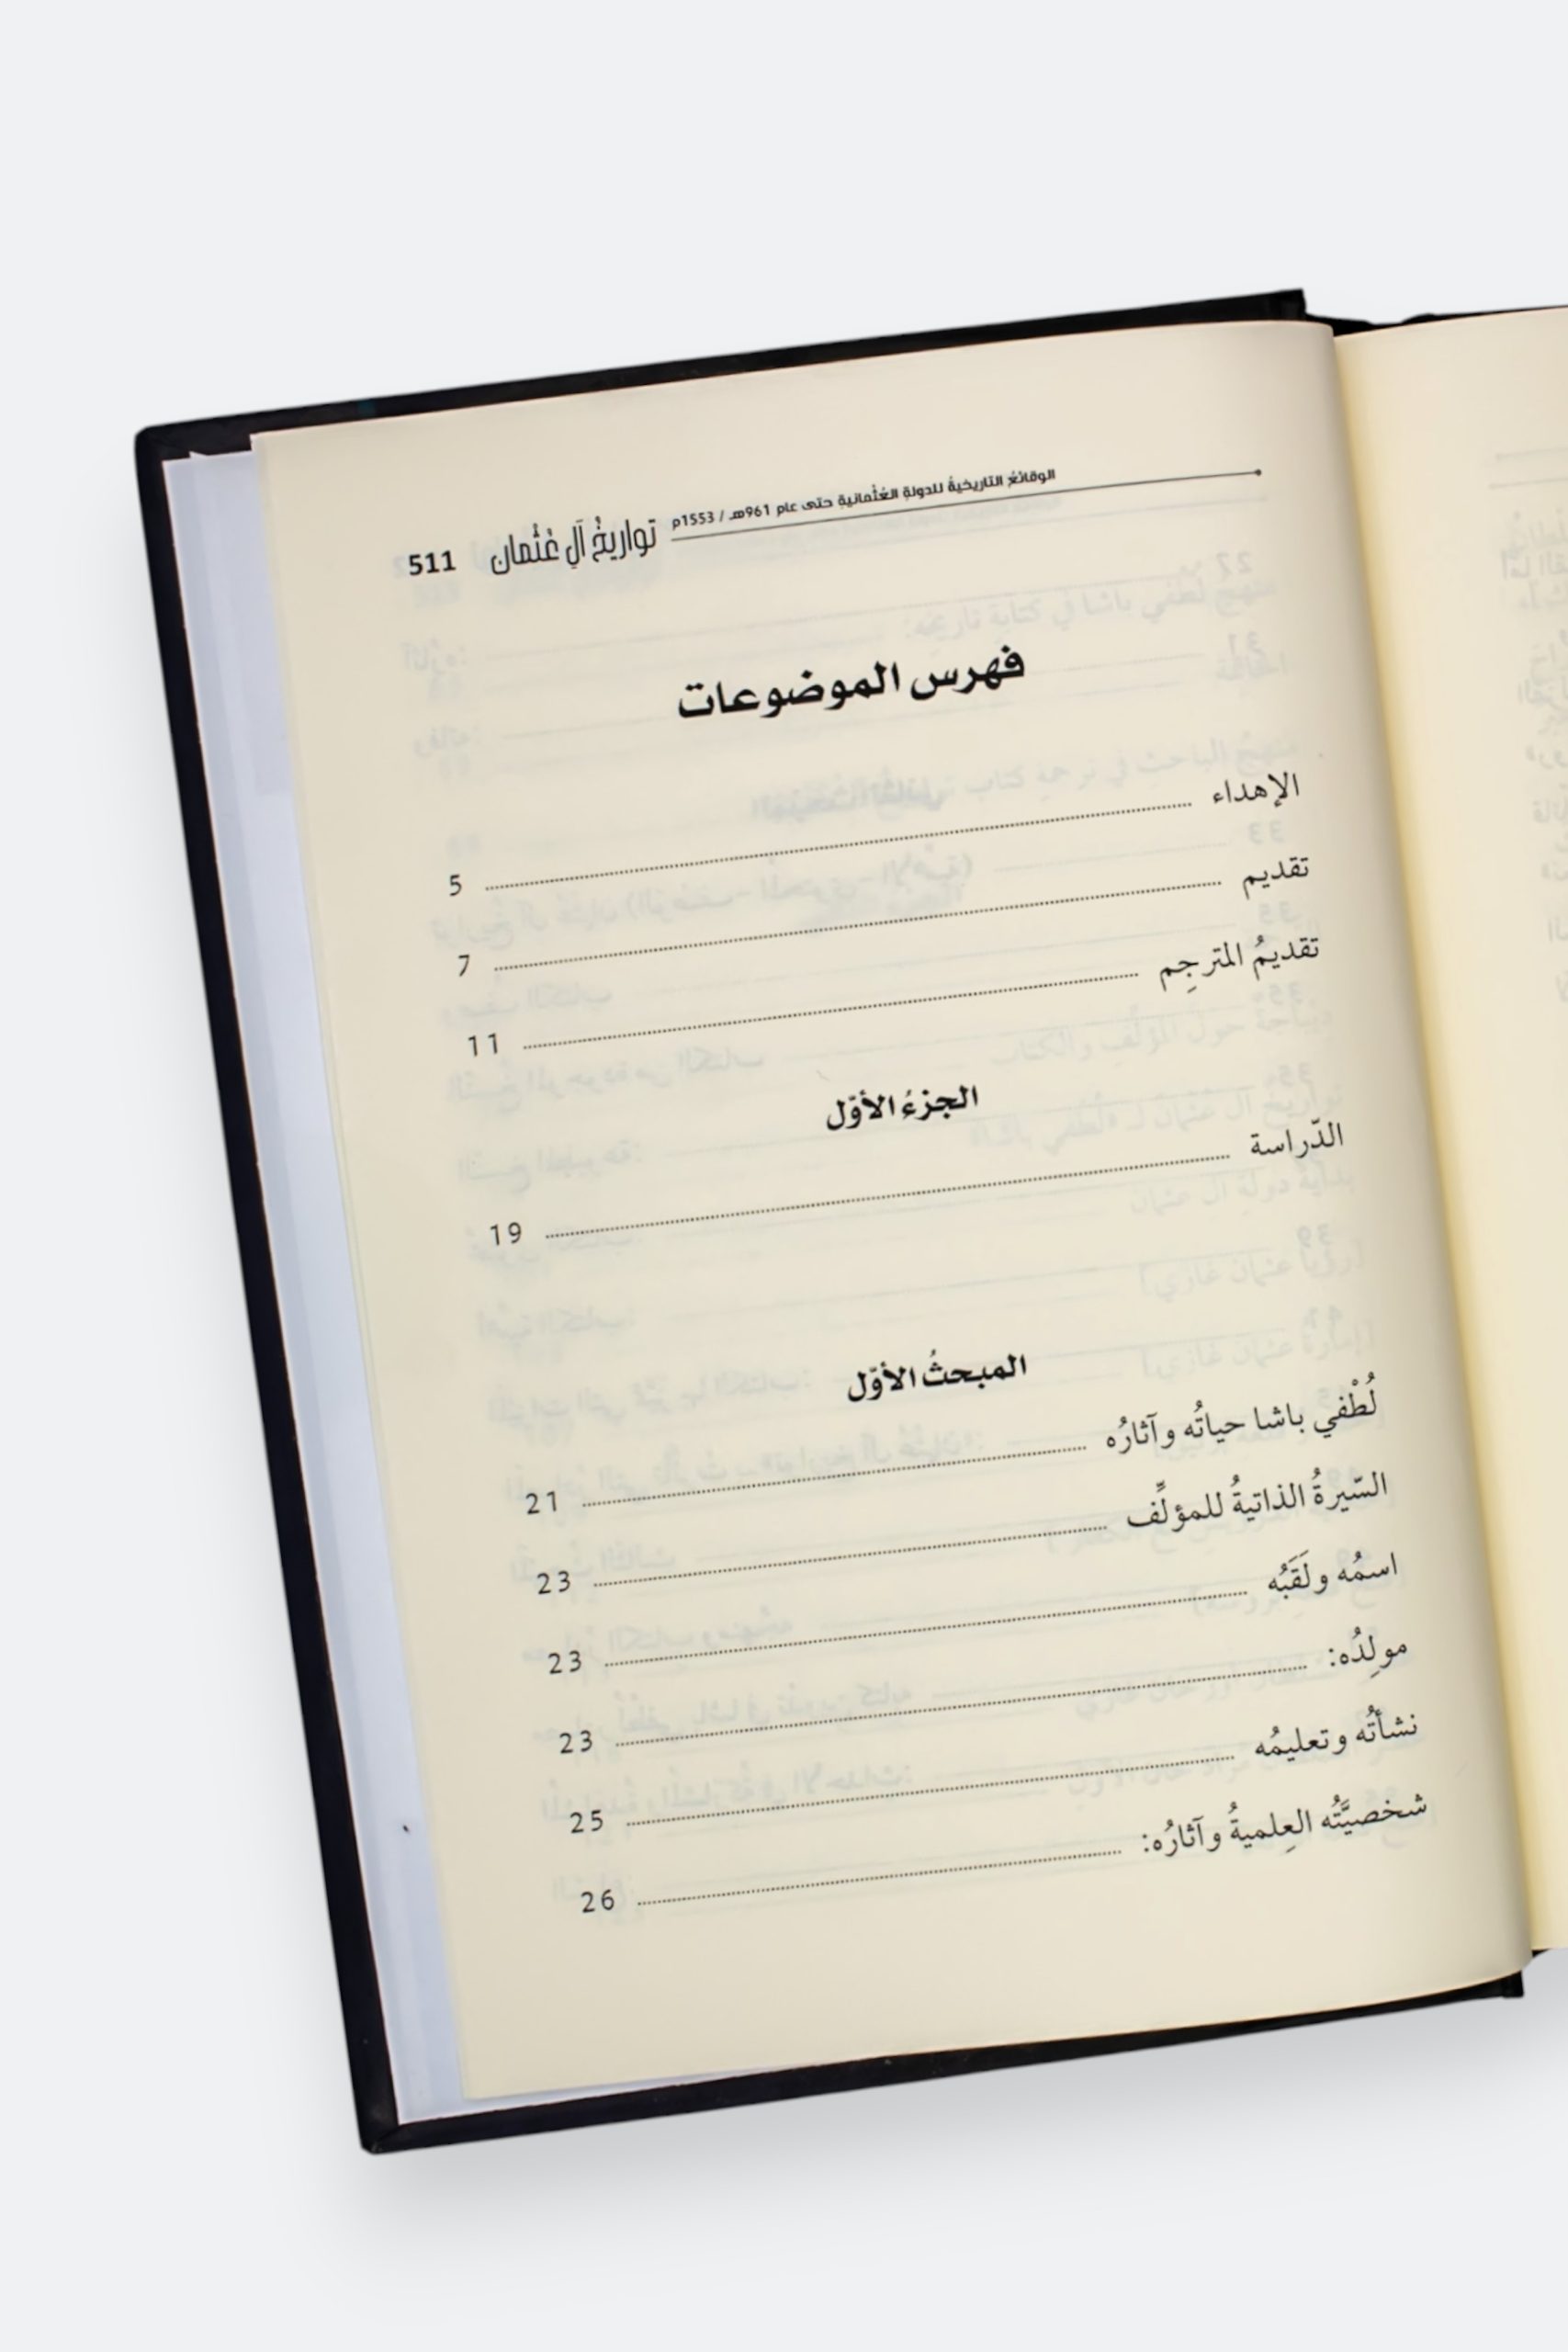 الوقائعُ التاريخيةُ للدولةِ العُثْمانيةِ حتى عام 961هـ / 1553م تواريخُ آلِ عُثْمان 511
فهرس الموضوعات
الإهداء ........ 5
تقديم ........ 7
تقديمُ المترجِم ........ 11
الجزءُ الأوّل
الدّراسة ........ 19
المبحثُ الأوّل
لُطْفي باشا حياتُه وآثارُه ........ 21
السّيرةُ الذاتيةُ للمؤلِّف ........ 23
اسمُه ولَقَبُه ........ 23
مولِدُه: ........ 23
نشأتُه وتعليمُه ........ 25
شخصيَّتُه العِلميةُ وآثارُه: ........ 26